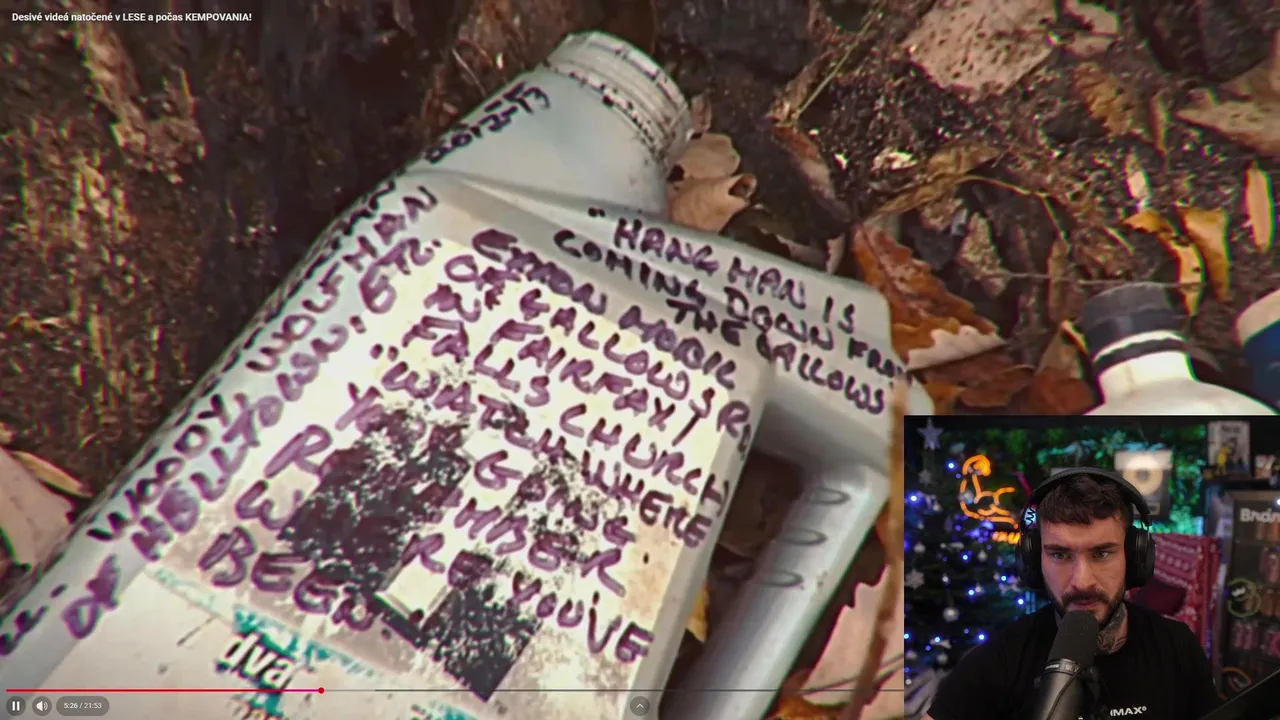 Desivé videá natočené v LESE a počas KEMPOVANIA!
"HANG MAN IS
COMING DOWN FROM
THE GALLOWS
EXXON MOBIL
ON GALLOWS RD
IN FAIRFAX/
FALLS CHURCH
"WATCH WHERE
GOING.
RE YOU'VE
BEEN.
WOODY WOLFMAN
OF HELLTOWN, ETC.
dva
5:26 / 21:53
IMAX®